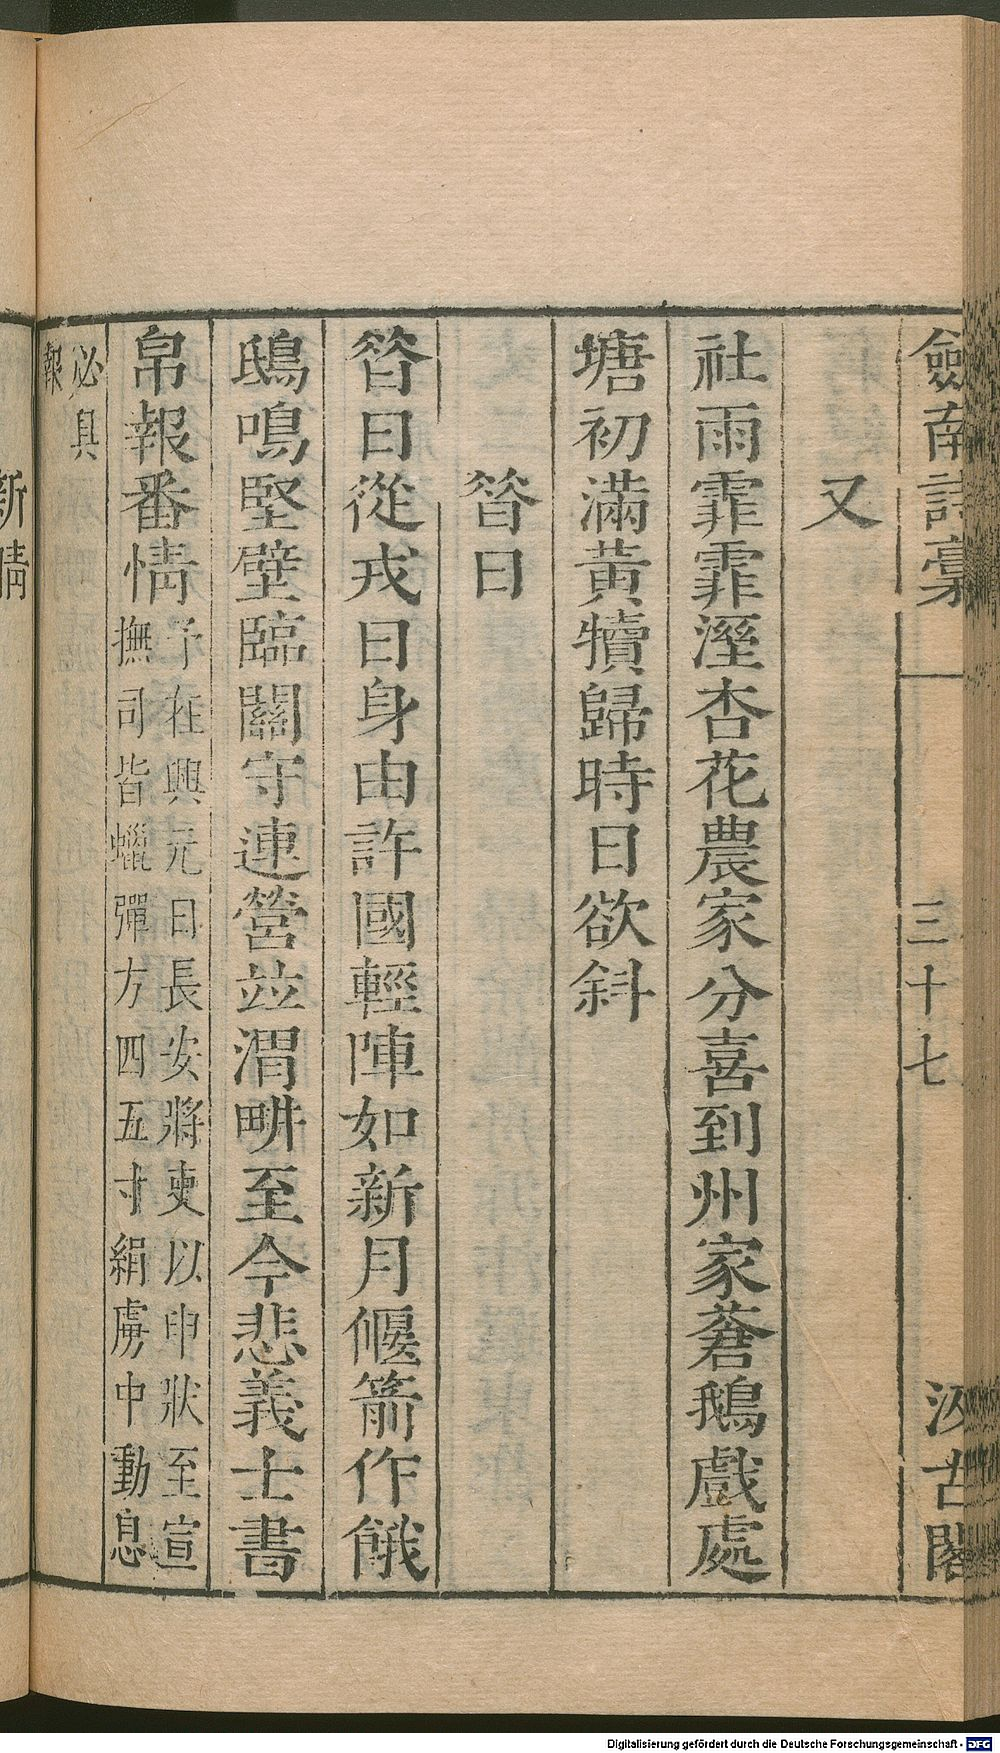 劍南詩稾 三十七 汲古閣
又
社雨霏霏溼杏花農家分喜到州家蒼鵝戲處
塘初滿黃犢歸時日欲斜
昝日
昝日從戎日身由許國輕陣如新月偃箭作餓
鴟鳴堅壁臨關守連營竝渭畊至今悲義士書
帛報番情予在興元日長安將吏以申狀至宣
撫司皆蠟彈方四五寸絹虜中動息
必具
報
新晴
Digitalisierung gefördert durch die Deutsche Forschungsgemeinschaft - DFG